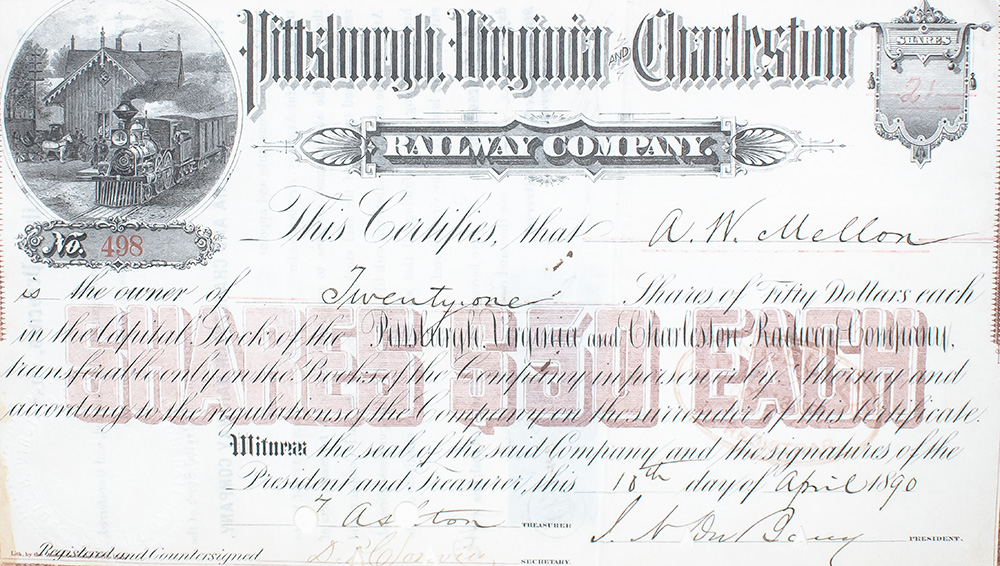 Pittsburgh, Virginia AND Charleston
RAILWAY COMPANY.
SHARES
21
No. 498
This Certifies, that A. W. Mellon
is the owner of Twenty-one Shares of Fifty Dollars each
in the Capital Stock of the Pittsburgh Virginia and Charleston Railway Company,
transferable only on the Books of the Company in person or by Attorney and
according to the regulations of the Company on the surrender of this Certificate.
SHARES $50 EACH
Witness the seal of the said Company and the signatures of the
President and Treasurer, this 10th day of April 1890
TREASURER
PRESIDENT.
Lith. by the
Registered and Countersigned
SECRETARY.